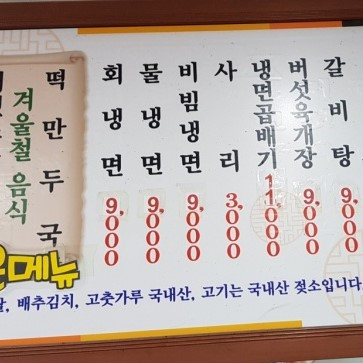 겨울철 음식
떡만두국
회냉면 9,000
물냉면 9,000
비빔냉면 9,000
사리 3,000
냉면곱배기 11,000
버섯육개장 9,000
갈비탕 9,000
메뉴
배추김치, 고춧가루 국내산, 고기는 국내산 젖소입니다